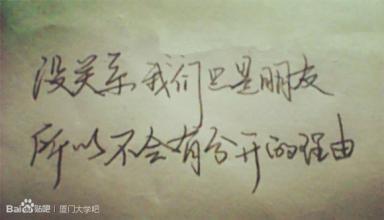 没关系 我们只是朋友
所以不会有分开的理由
Bai贴吧 | 厦门大学吧